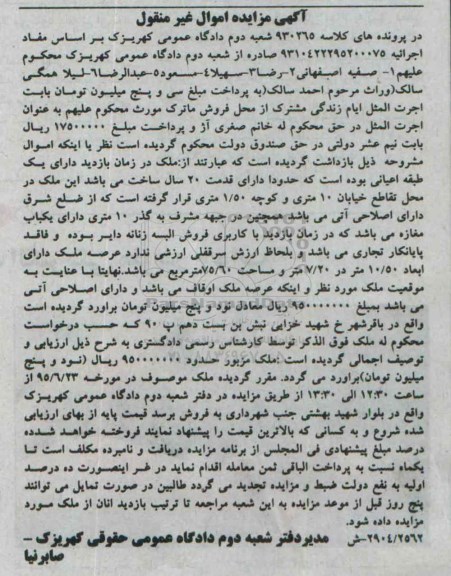 آگهی مزایده اموال غیر منقول
در پرونده های کلاسه ۹۳۰۲۶۵ شعبه دوم دادگاه عمومی کهریزک بر اساس مفاد
اجرائیه ۹۳۱۰۴۲۲۲۹۵۲۰۰۰۷۵ صادره از شعبه دوم دادگاه عمومی کهریزک محکوم
علیهم ۱- صفیه اصفهانی۲-رضا۳-سهیلا۴-مسعود۵-عبدالرضا۶-لیلا همگی
سالک(وراث مرحوم احمد سالک)به پرداخت مبلغ سی و پنج میلیون تومان بابت
اجرت المثل ایام زندگی مشترک از محل فروش ماترک مورث محکوم علیهم به عنوان
اجرت المثل در حق محکوم له خانم صغری آژ و پرداخت مبلغ ۱۷۵۰۰۰۰۰ ریال
بابت نیم عشر دولتی در حق صندوق دولت محکوم گردیده است نظر یا اینکه اموال
مشروحه ذیل بازداشت گردیده است که عبارتند از:ملک در زمان بازدید دارای یک
طبقه اعیانی بوده است که حدودا دارای قدمت ۲۰ سال ساخت می باشد این ملک در
محل تقاطع خیابان ۱۰ متری و کوچه ۱/۵۰ متری قرار گرفته است که از ضلع شرق
دارای اصلاحی آتی می باشد همچنین در جبهه مشرف به گذر ۱۰ متری دارای یکباب
مغازه می باشد که در زمان بازدید با کاربری فروش البسه زنانه دایر بوده و فاقد
پایانکار تجاری می باشد و بلحاظ ارزش سرقفلی ارزشی ندارد عرصه ملک دارای
ابعاد ۱۰/۵۰ متر در ۷/۲۰ متر و مساحت ۷۵/۶۰مترمربع می باشد.نهایتا با عنایت به
موقعیت ملک مورد نظر و اینکه عرصه ملک اوقاف می باشد و دارای اصلاحی آتی
می باشد بمبلغ ۹۵۰۰۰۰۰۰۰ ریال معادل نود و پنج میلیون تومان براورد گردیده است
واقع در باقرشهر خ شهید خزایی نبش بن بست دهم پ ۹۰ که حسب درخواست
محکوم له ملک فوق الذکر توسط کارشناس رسمی دادگستری به شرح ذیل ارزیابی و
توصیف اجمالی گردیده است :ملک مزبور حدود ۹۵۰۰۰۰۰۰۰ ریال (نود و پنج
میلیون تومان)براورد می گردد. مقرر گردیده ملک موصوف در مورخه ۹۵/۶/۲۳ از
ساعت ۱۲:۳۰ الی ۱۳:۳۰ از طریق مزایده در دفتر شعبه دوم دادگاه عمومی کهریزک
واقع در بلوار شهید بهشتی جنب شهرداری به فروش برسد قیمت پایه از بهای ارزیابی
شده شروع و به کسانی که بالاترین قیمت را پیشنهاد نمایند فروخته خواهد شد.ده
درصد مبلغ پیشنهادی فی المجلس از برنامه مزایده دریافت و نامبرده مکلف است تا
یکماه نسبت به پرداخت الباقی ثمن معامله اقدام نماید در غیر اینصورت ده درصد
اولیه به نفع دولت ضبط و مزایده تجدید می گردد طالبین در صورت تمایل می توانند
پنج روز قبل از موعد مزایده به این شعبه مراجعه تا ترتیب بازدید انان از ملک مورد
مزایده داده شود.
۲۹۰۴/۲۵۶۲-ش مدیردفتر شعبه دوم دادگاه عمومی حقوقی کهریزک –
صابرنیا